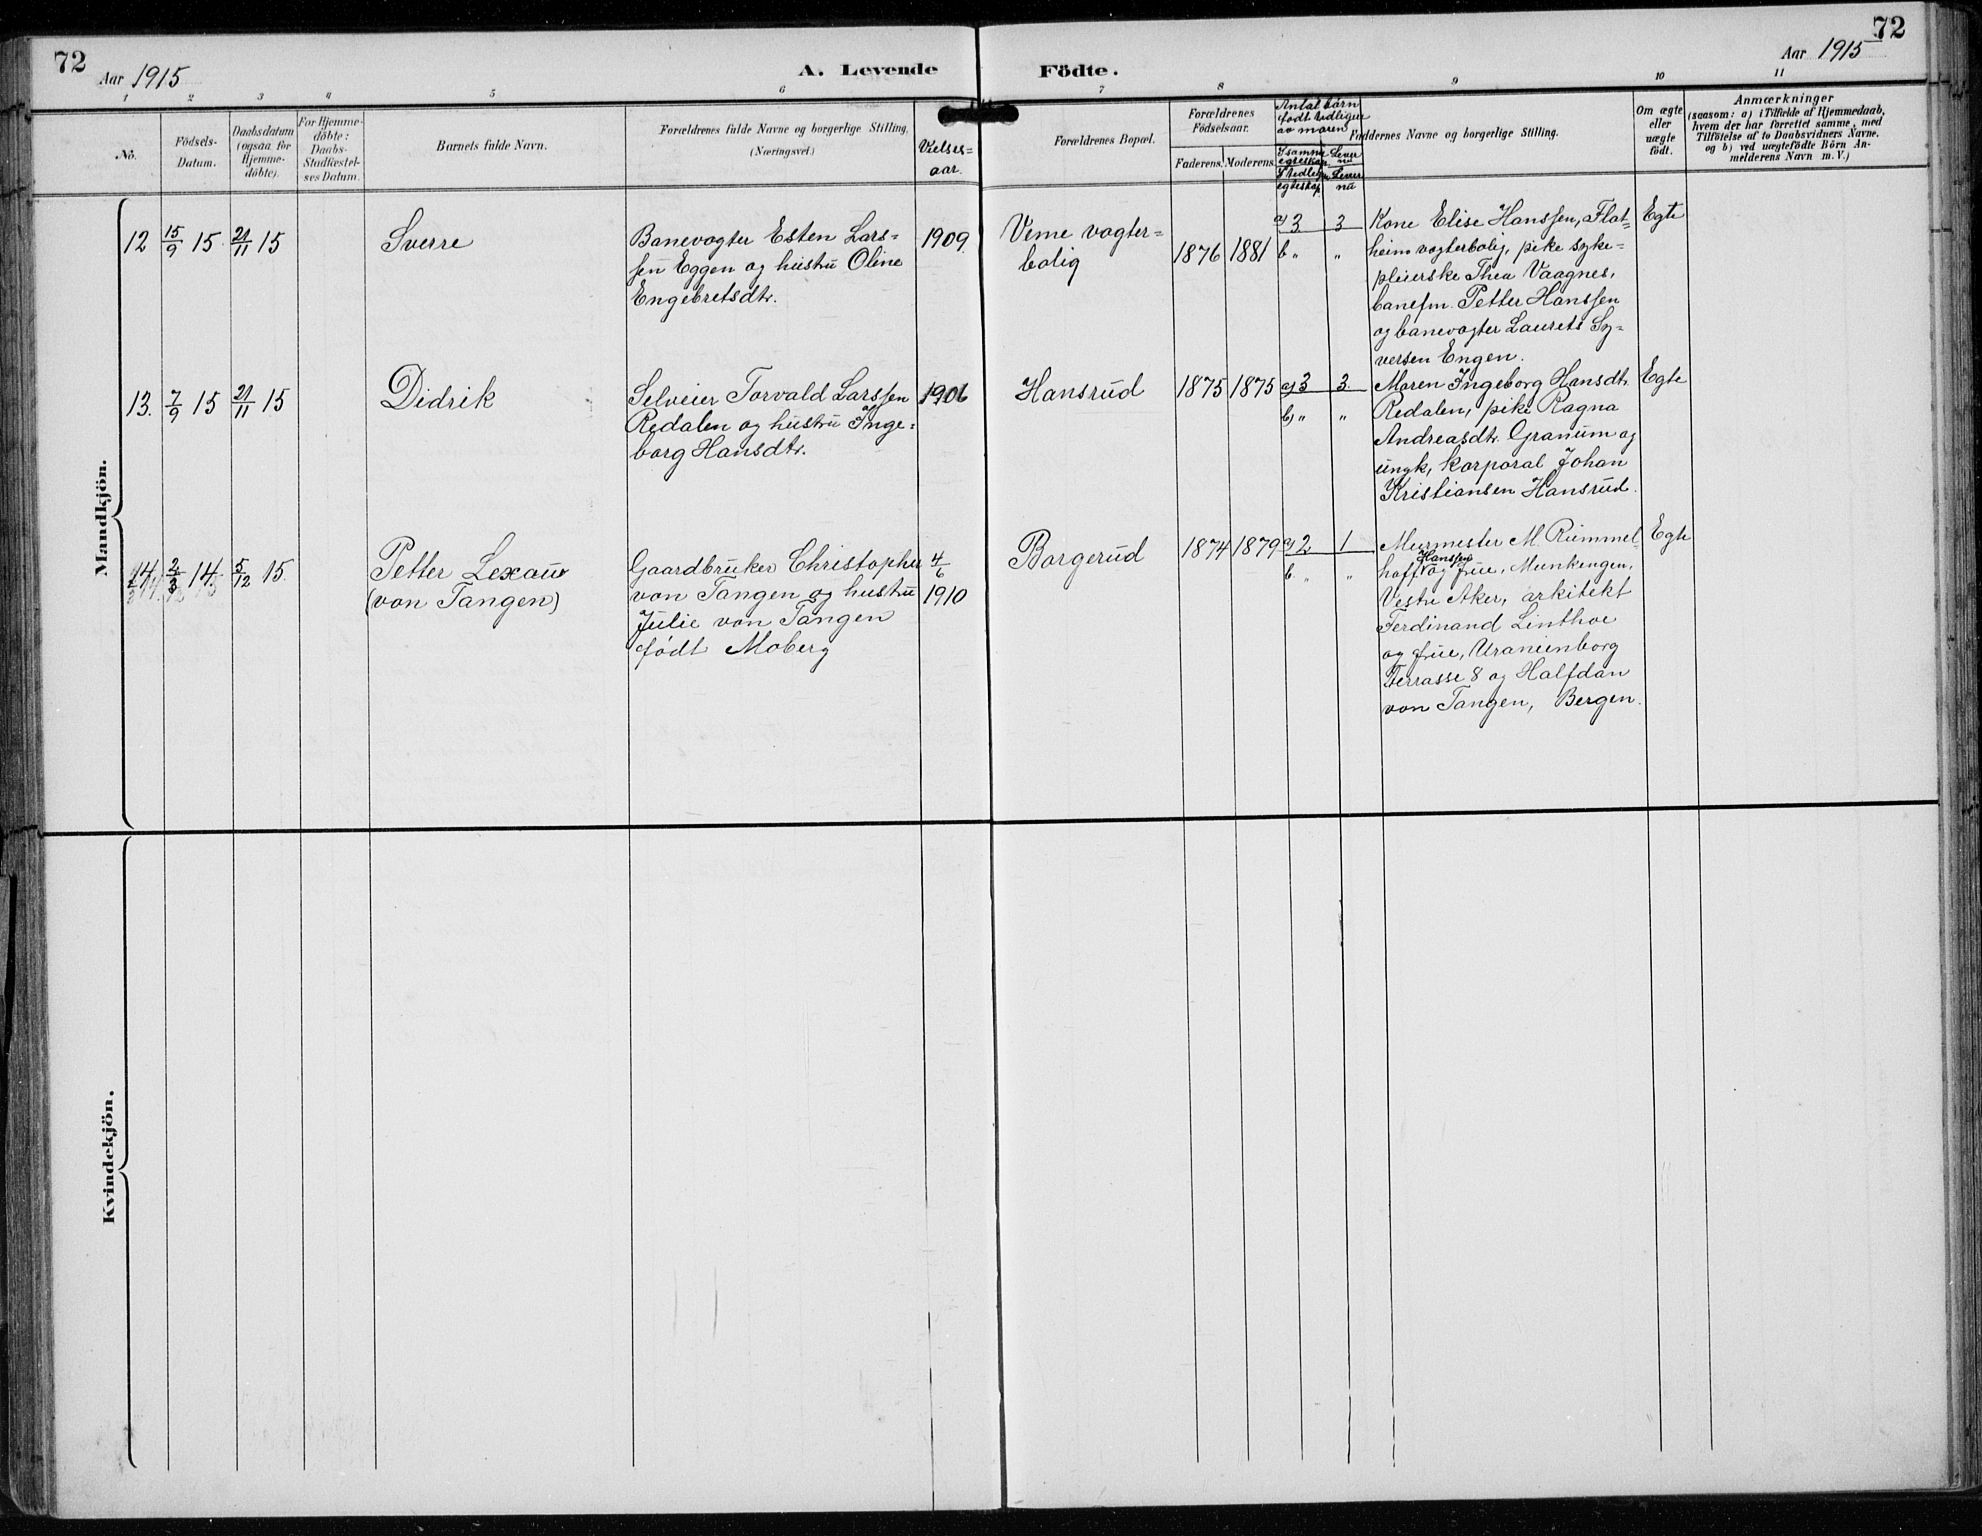 72
Aar 1915
A. Levende Födte.
Aar 1915
72
1 2 3 4 5 6 7 8 9 10 11
No.
Födsels-
Datum.
Daabsdatum
(ogsaa for
Hjemme-
döbte).
For Hjemme-
döbte:
Daabs-
Stadfæstel-
ses Datum.
Barnets fulde Navn.
Forældrenes fulde Navne og borgerlige Stilling.
(Næringsvei.)
Vielses-
aar.
Forældrenes Bopæl.
Forældrenes
Födselsaar.
Faderens. Moderens.
Antal børn
født tidligere
av moren
I samme
egteskap
Lever
nu
I tidligere
egteskap
Lever
nu
Faddernes Navne og borgerlige Stilling.
Om ægte
eller
uægte
födt.
Anmærkninger
(saasom: a) i Tilfælde af Hjemmedaab,
hvem der har forrettet samme, med
Tilföielse af to Daabsvidners Navne.
og b) ved uægtefödte Börn An-
melderens Navn m. V.)
Mandkjön.
12 15/9 15. 21/11 15
Sverre
Banevogter Esten Lars-
sen Eggen og hustru Oline
Engebretsdtr.
1909
Veme vogter-
bolig
1876 1881
a) 3 3
b " "
Kone Elise Hanssen, Flat-
heim vogterbolig, pike syke-
pleierske Thea Vaagnes,
banefm. Petter Hanssen
og banevogter Laurets Sy-
versen Engen.
Egte
13. 7/9 15 21/11 15
Didrik
Selveier Torvald Larssen
Redalen og hustru Inge-
borg Hansdtr.
1906
Hansrud
1875 1875
a) 3 3
b) " "
Maren Ingeborg Hansdtr.
Redalen, pike Ragna
Andreasdtr. Granum og
ungk, korporal Johan
Kristiansen Hansrud.
Egte
14 2/3 14. 5/12 15.
Petter Lexau
(von Tangen)
Gaardbruker Christopher
von Tangen og hustru
Julie von Tangen
født Moberg
4/6
1910
Borgerud
1874 1879
a) 2 1
b " "
Murmester M. Rummel-
hoff Hanssen og frue, Munkengen,
Vestre Aker, arkitekt
Ferdinand Linthoe
og frue, Uranienborg
Terrasse 8 og Halfdan
von Tangen, Bergen.
Egte
Kvindekjön.